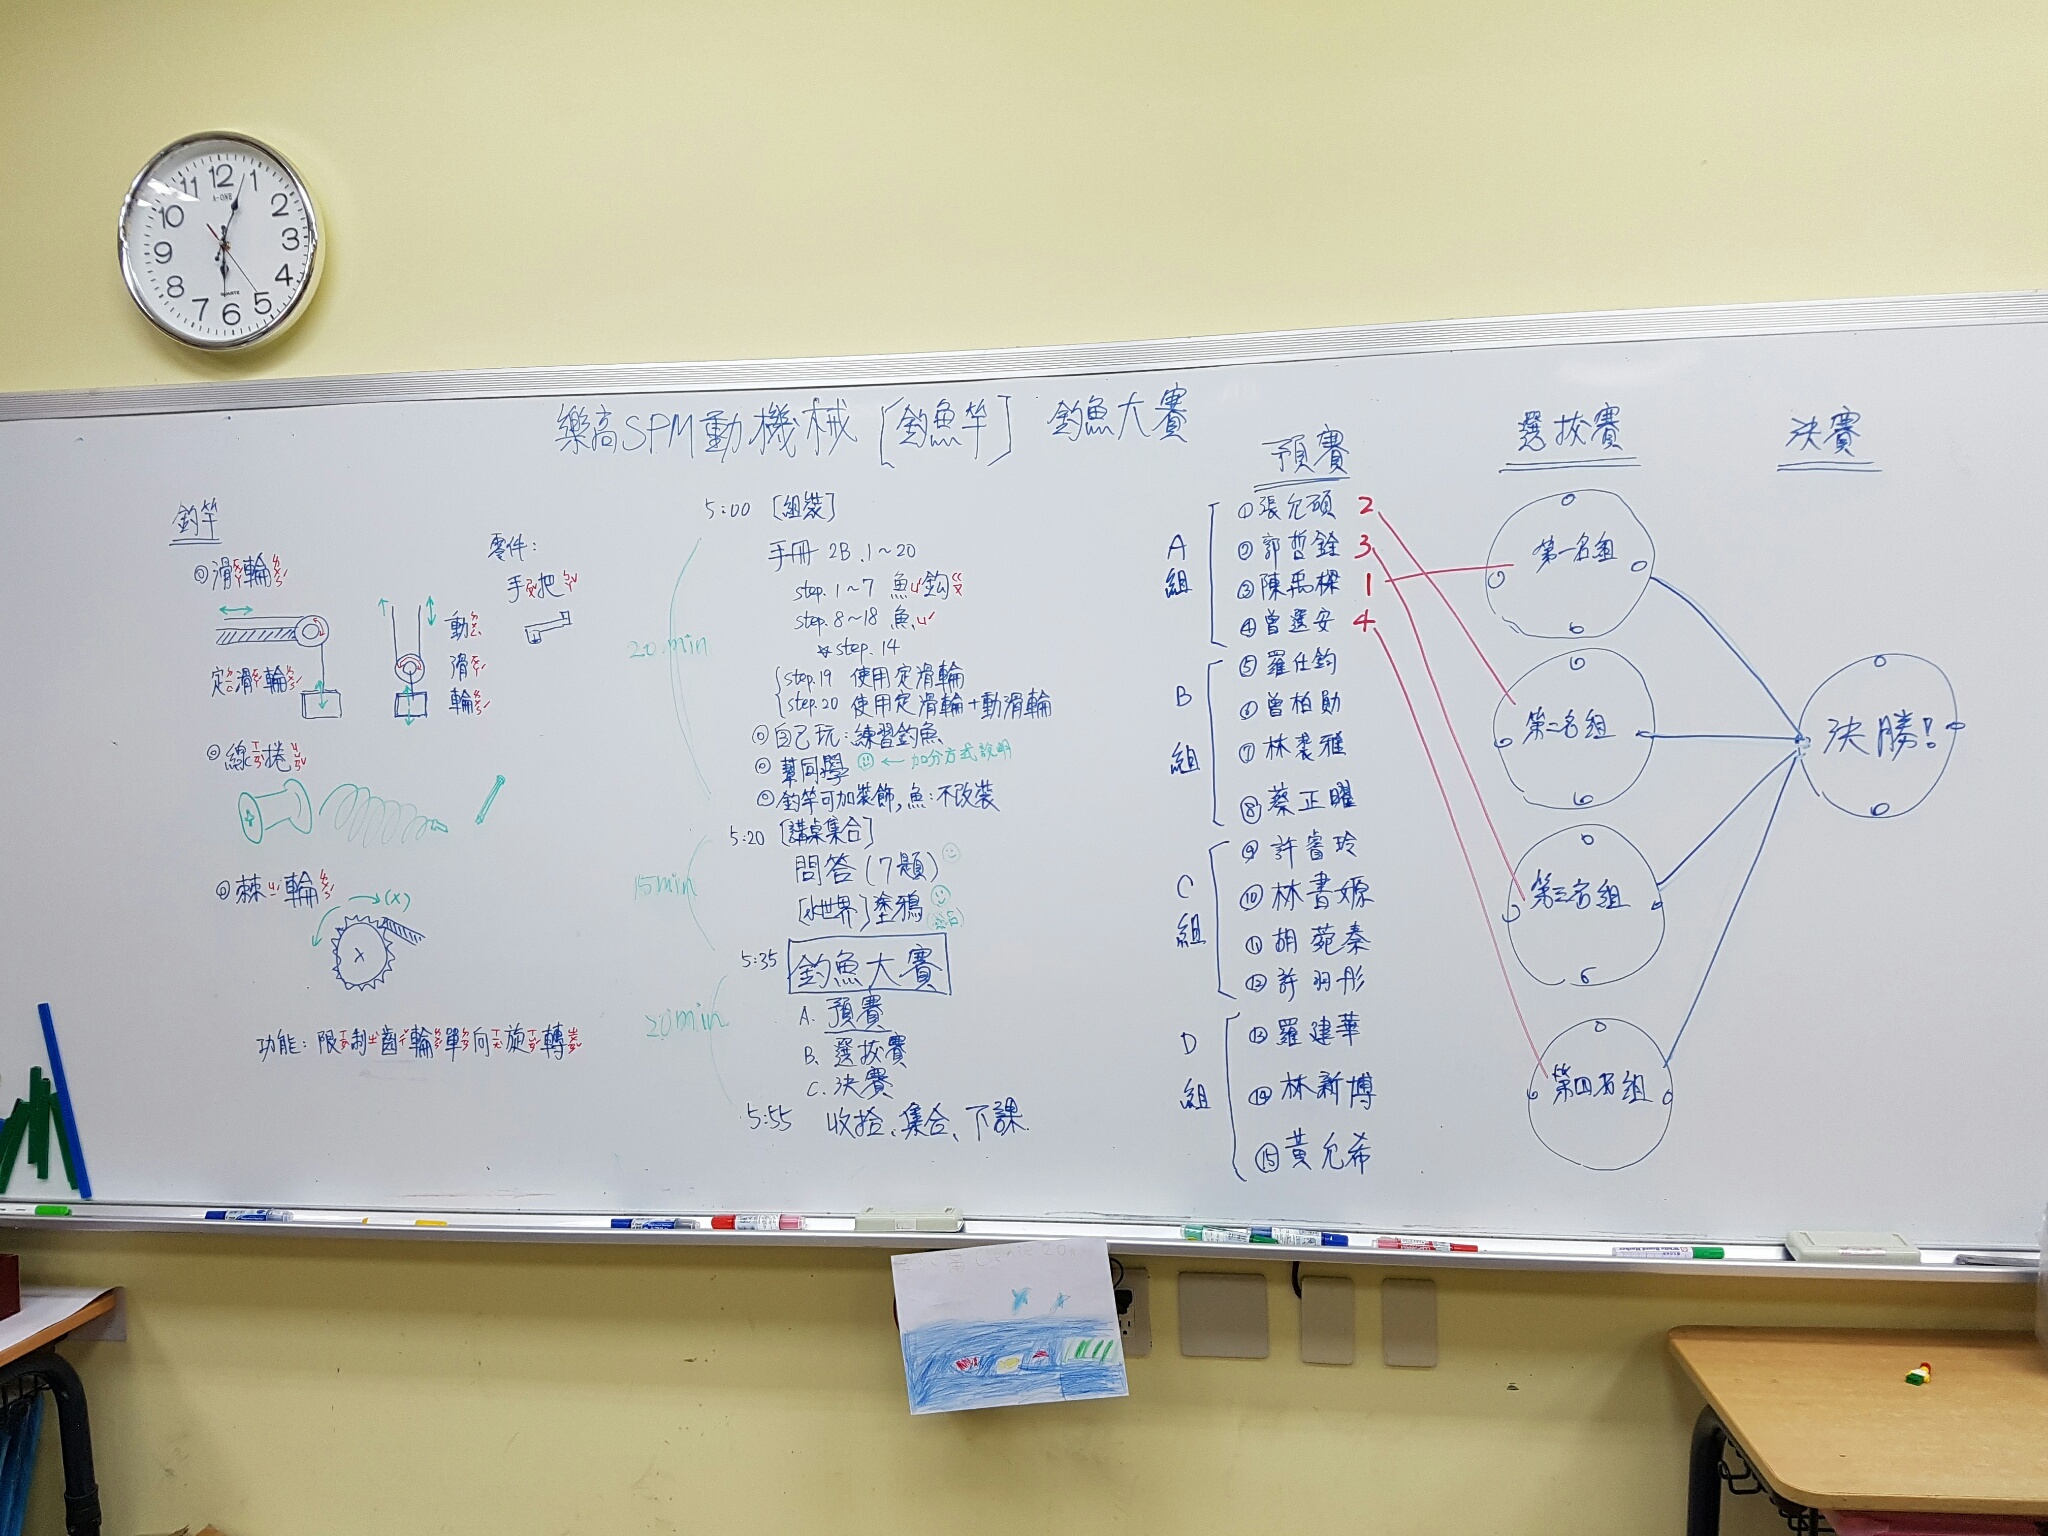 12
1
2
3
4
5
6
7
8
9
10
11
QUARTZ
樂高SPM動機械〔釣魚竿〕 釣魚大賽
釣竿
◎滑輪
定滑輪
動滑輪
零件:
手把
◎線捲
◎棘輪
(X)
X
功能: 限制齒輪單向旋轉
5:00 [組裝]
20 min
手冊 2B. 1~20
step. 1~7 魚鈎
step. 8~18 魚
☆step. 14
step.19 使用定滑輪
step.20 使用定滑輪+動滑輪
◎自己玩:練習釣魚
◎幫同學 ← 加分方式說明
◎釣竿可加裝飾,魚:不改裝
5:20 [講桌集合]
15min
問答(7題)
[水世界]塗鴉
5:35 釣魚大賽
20min
A. 預賽
B. 選拔賽
C. 決賽
5:55 收拾、集合、下課.
預賽
A組
①張允碩 2
②郭哲銓 3
③陳禹樑 1
④曾選安 4
B組
⑤羅仕鈞
⑥曾柏勛
⑦林裘雅
⑧蔡正曜
C組
⑨許睿玲
⑩林書嫄
⑪胡苑秦
⑫許羽彤
D組
⑬羅建華
⑭林新博
⑮黃允希
選拔賽
第一名組
第二名組
第三名組
第四名組
決賽
決勝!